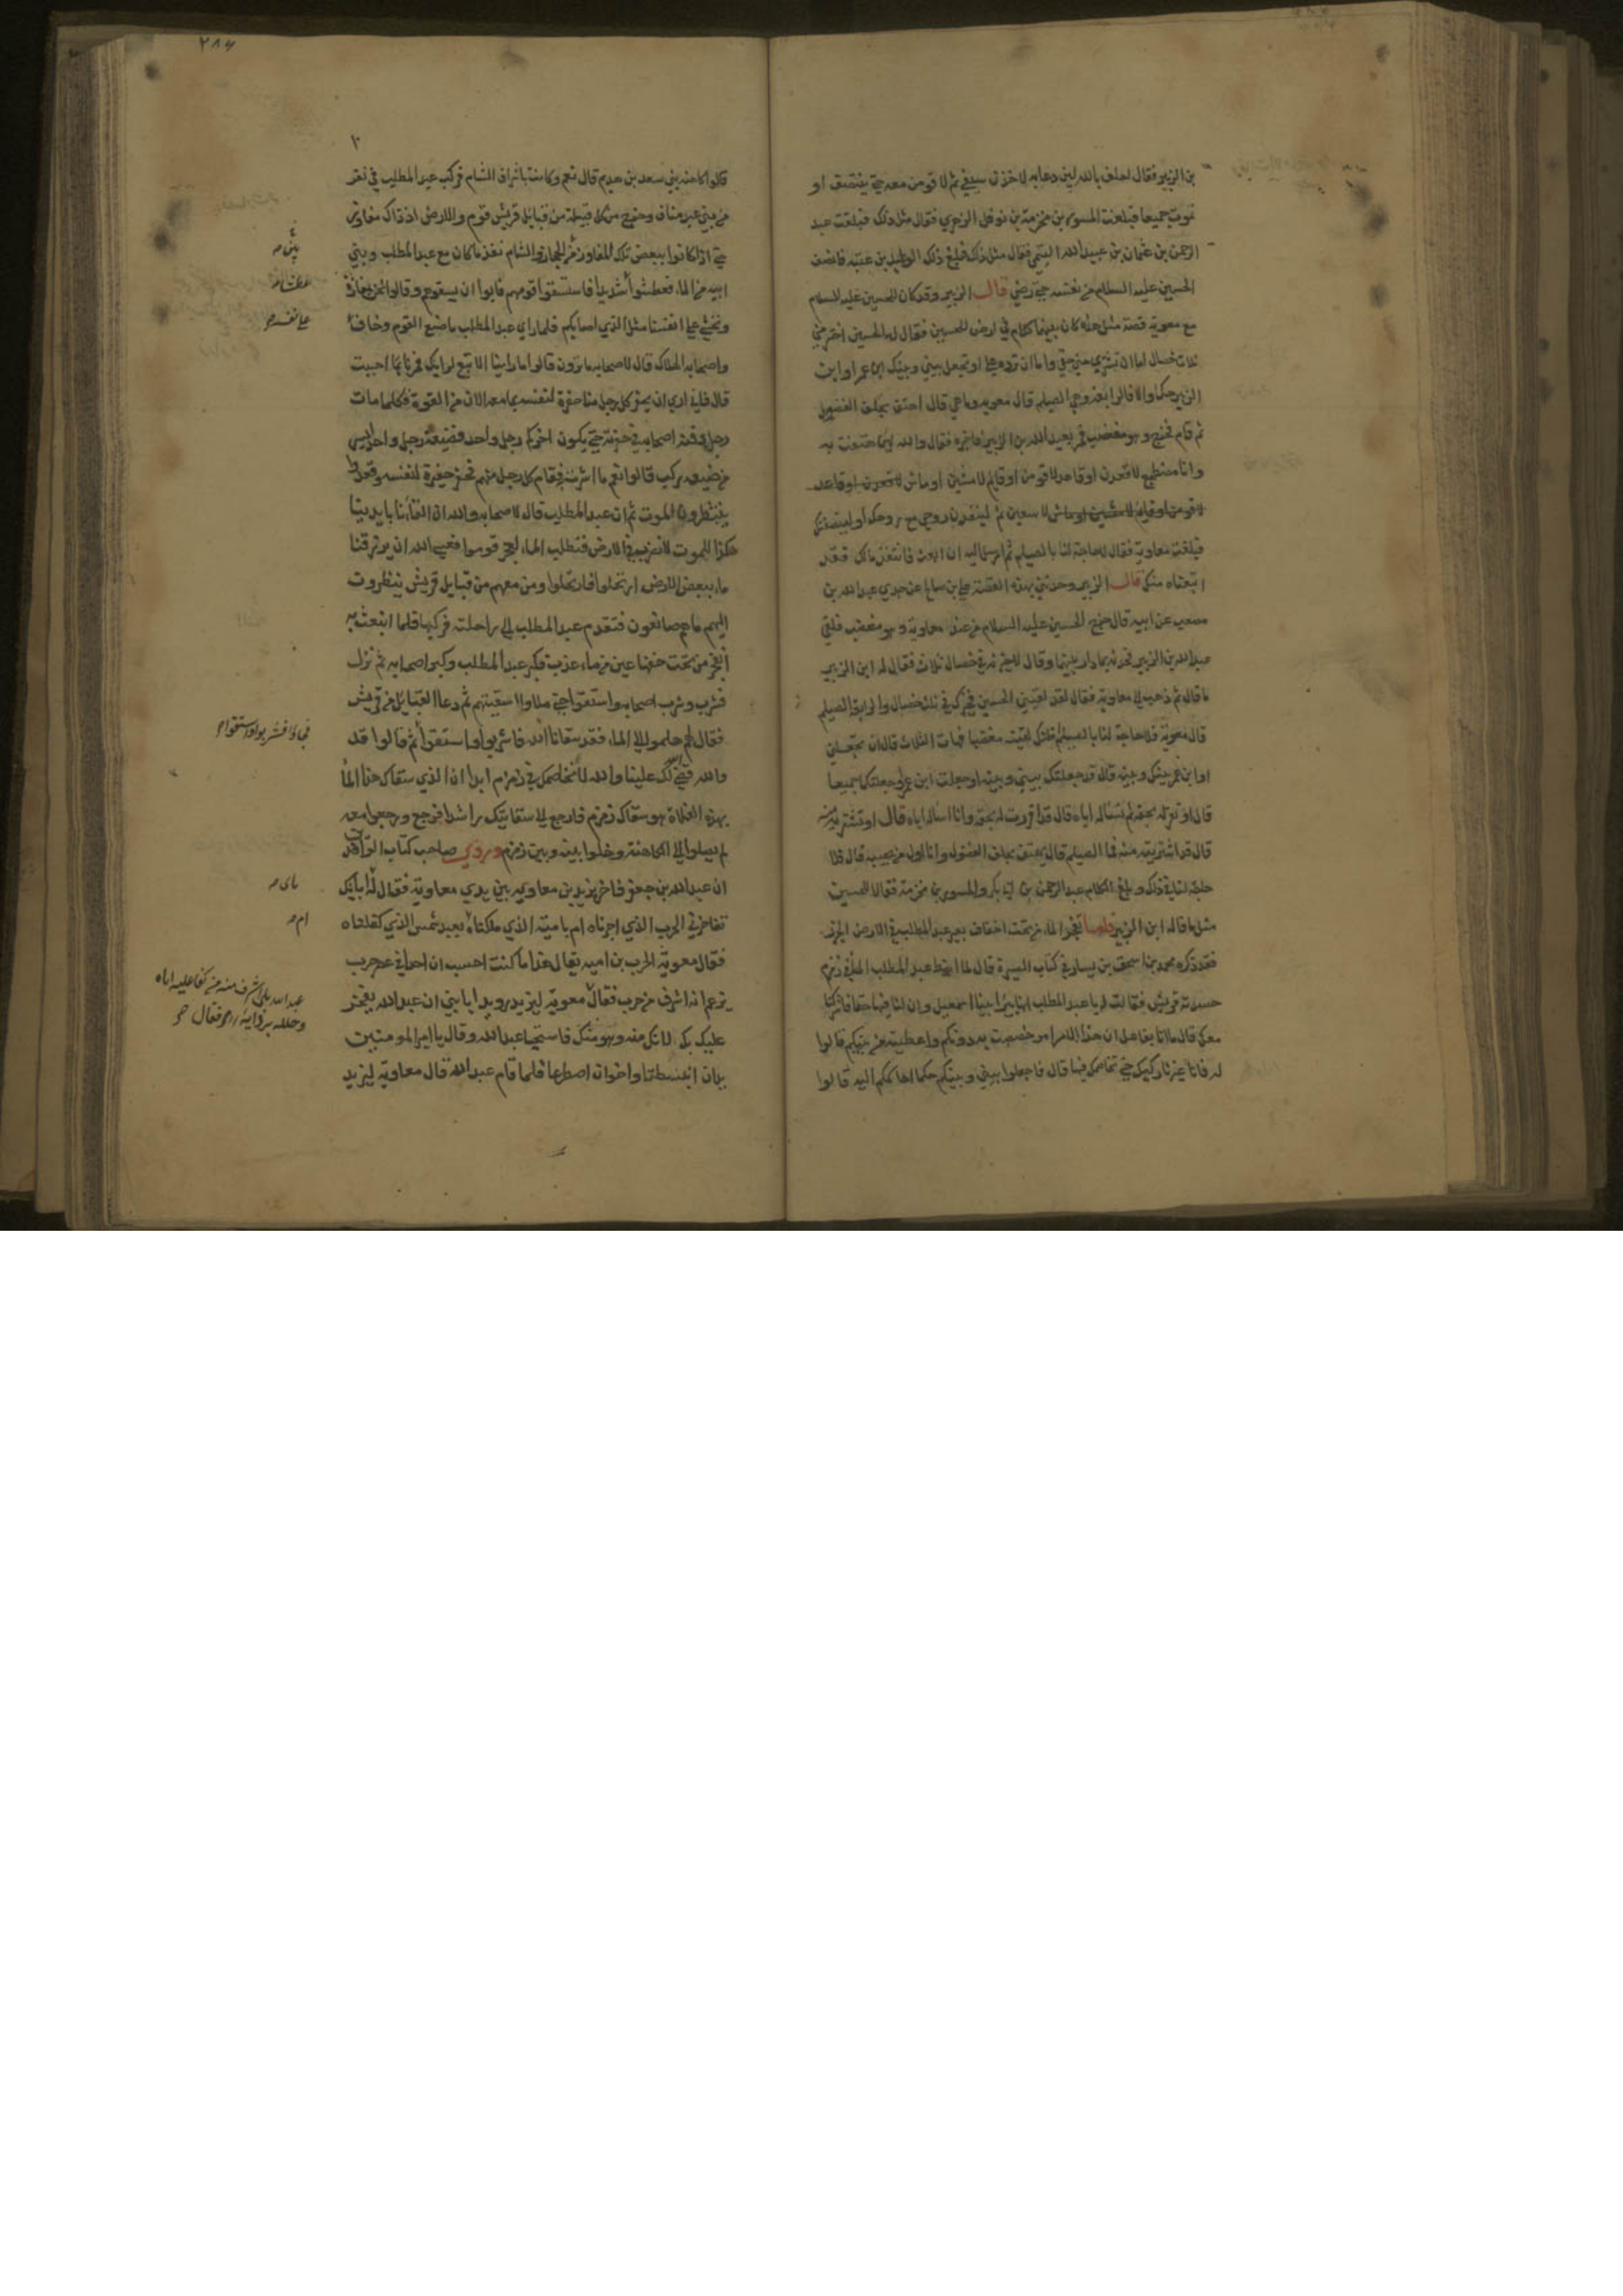 بن الزبير فقال احلف بالله لين دعا به لاخذن سيفي ثم لاقومن معه حتى ينتصف او
نموت جميعا فبلغت المسور بن مخرمة بن نوفل الزهري فقال مثل ذلك فبلغت عبد
الرحمن بن عثمان بن عبيد الله التيمي فقال مثل ذلك فبلغ ذلك الوليد بن عتبه فانصف
الحسين عليه السلام من نفسه حتى رضي قال الزبير وقد كان للحسين عليه السلام
مع معوية قصة مثل هذه كان بينهما كلام في ارض للحسين فقال له الحسين اختر مني
ثلاث خصال اما ان تشتري مني حقي واما ان ترده علي او تجعل بيني وبينك ابن عمر او ابن
الزبير حكما والا فالرابعة وهي الصيلم قال معويه وما هي قال اهتف بحلف الفضول
ثم قام فخرج وهو مغضب فمر بعبد الله بن الزبير فاخبره فقال والله لين هتفت به
وانا مضطجع لاقعدن او قاعد لاقومن او قايم لامشين او ماش لاقعدن او قاعد
لاقومن او قايم لامشين او ماش لاسعين ثم لينفدن روحي مع روحك او لينصفنك
فبلغت معاوية فقال لا حاجة لنا بالصيلم ثم ارسل اليه ان ابعث فانتقد مالك فقد
ابتعناه منك قال الزبير وحدثني بهذه القصة علي بن صالح عن جدي عبد الله بن
مصعب عن ابيه قال خرج الحسين عليه السلام من عند معاوية وهو مغضب فلقي
عبد الله بن الزبير فحدثه بما دار بينهما وقال لاخيرنه في خصال ثلاث فقال له ابن الزبير
ما قال ثم ذهب الى معاوية فقال لقد لقيني الحسين فخيرك في ثلث خصال والرابعة الصيلم
قال معوية فلا حاجة لنا بالصيلم اظنك لقيته مغضبا فهات الثلاث قال ان تجعلني
او ابن عمر بينك وبينه قال قد جعلتك بيني وبينه او جعلت ابن عمر او جعلتكما جميعا
قال او تقر له بحقه ثم تسئاله اياه قال قد اقررت له بحقه وانا اسئاله اياه قال او تشتريه منه
قال قد اشتريته منه فما الصيلم قال يهتف بحلف الفضول وانا اول من يجيبه قال فلا
حاجة لنا في ذلك وبلغ الكلام عبد الرحمن بن ابي بكر والمسور بن مخرمة فقالا للحسين
مثل ما قاله ابن الزبير فاما تفجر الماء من تحت اخفاف بعير عبد المطلب في الارض الجرز
فقد ذكره محمد بن اسحق بن يسار في كتاب السيرة قال لما انبط عبد المطلب الماء في زمزم
حسدته قريش فقالت له يا عبد المطلب انها بئر ابينا اسمعيل وان لنا فيها حقا فاشركنا
معك قال ما انا بفاعل ان هذا الامر امر خصصت به دونكم واعطيته من بينكم قالوا
له فانا غير تاركيك حتى نخاصمك فيها قال فاجعلوا بيني وبينكم حكما احاكمكم اليه قالوا
٢٨٧
قالوا كاهنة بني سعد بن هذيم قال نعم وكانت باشراف الشام فركب عبد المطلب في نفر
من بني عبد مناف وخرج من كل قبيلة من قبايل قريش قوم والارض اذ ذاك مفاوز
حتى اذا كانوا ببعض تلك المفاوز بين الحجاز والشام نفد ما كان مع عبد المطلب وبني
ابيه من الماء فعطشوا شديدا فاستسقوا قومهم فابوا ان يسقوهم وقالوا نحن بمفازة
ونخشى على انفسنا مثل الذي اصابكم فلما راى عبد المطلب ما صنع القوم وخاف
واصحابه الهلاك قال لاصحابه ما ترون قالوا ما راينا الا تبع لرايك فمرنا بما احببت
قال فاني ارى ان يحفر كل رجل منا حفرة لنفسه بما معه الان من القوة فكلما مات
رجل دفنه اصحابه في حفرته حتى يكون اخركم رجل واحد فضيعة رجل واحد ايسر
من ضيعة ركب قالوا نعم ما اشرت فقام كل رجل منهم فحفر حفيرة لنفسه وقعدوا
ينتظرون الموت ثم ان عبد المطلب قال لاصحابه والله ان القاءنا بايدينا
هكذا للموت لا نضرب في الارض فنطلب الماء لعجز قوموا فعسى الله ان يرزقنا
ماء ببعض الارض ارتحلوا فارتحلوا ومن معهم من قبايل قريش ينظرون
اليهم ما هم صانعون فتقدم عبد المطلب الى راحلته فركبها فلما انبعثت به
انفجر من تحت خفها عين من ماء عذب فكبر عبد المطلب وكبر اصحابه ثم نزل
فشرب وشرب اصحابه واستقوا حتى ملاوا اسقيتهم ثم دعا القبايل من قريش
فقال لهم هلموا الى الماء فقد سقانا الله فاشربوا واستقوا ثم قالوا قد
والله قضى لك علينا والله لا نخاصمك في زمزم ابدا ان الذي سقاك هذا الماء
بهذه الفلاة هو سقاك زمزم فارجع الى سقايتك راشدا فرجع ورجعوا معه
لم يصلوا الى الكاهنة وخلوا بينه وبين زمزم وروى صاحب كتاب الواقدي
ان عبد الله بن جعفر فاخر يزيد بن معاويه بين يدي معاوية فقال له ابايك
تفاخرني الحرب الذي اجرناه ام بامية الذي ملكناه ام بعبد شمس الذي كفلناه
فقال معوية لحرب بن اميه يقال هذا ما كنت احسب ان احدا في عصر حرب
يزعم انه اشرف من حرب فقال معوية ليزيد رويدا يا بني ان عبد الله يفخر
عليك بك لانك منه وهو منك فاستحيا عبد الله وقال يا امير المومنين
يدان انبسطتا واخوان اصطرعا فلما قام عبد الله قال معاوية ليزيد
بين
عطشا
على نفسه
فجاؤا فشربوا واستقوا
باى
ام
عبد الله بلى اشرف منه من كفا عليه اناه
وجلله بردايه فقال